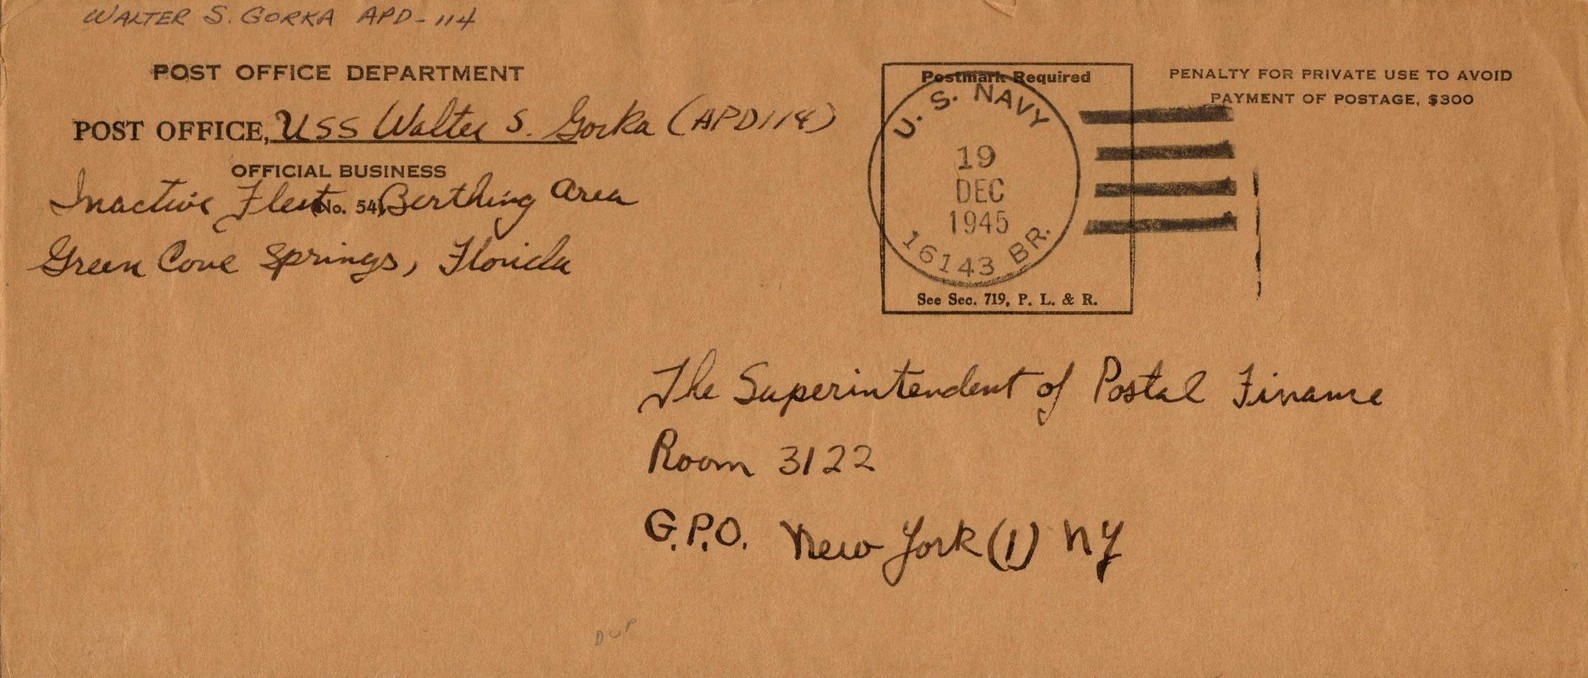 WALTER S. GORKA APD-114
POST OFFICE DEPARTMENT
POST OFFICE, USS Walter S. Gorka (APD114)
OFFICIAL BUSINESS
Inactive Fleet Berthing Area
No. 54
Green Cove Springs, Florida
Postmark Required
U.S. NAVY
19
DEC
1945
16143 BR.
See Sec. 719, P. L. & R.
PENALTY FOR PRIVATE USE TO AVOID
PAYMENT OF POSTAGE, $300
The Superintendent of Postal Finance
Room 3122
G.P.O. New York (1) NY